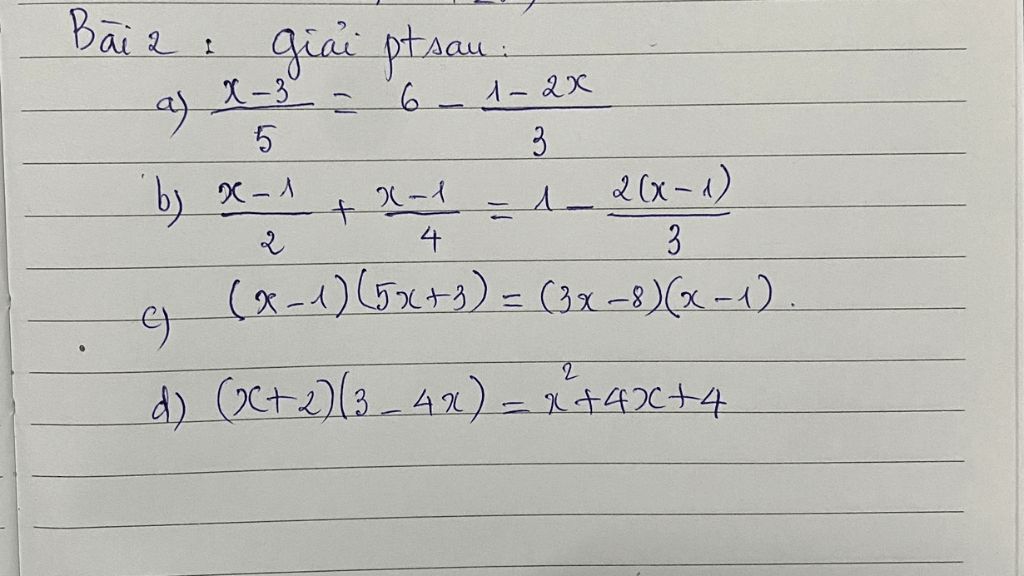 Bài 2 : Giải pt sau :
a) \frac{x-3}{5} = 6 - \frac{1-2x}{3}
b) \frac{x-1}{2} + \frac{x-1}{4} = 1 - \frac{2(x-1)}{3}
c) (x-1)(5x+3) = (3x-8)(x-1).
d) (x+2)(3-4x) = x^2+4x+4